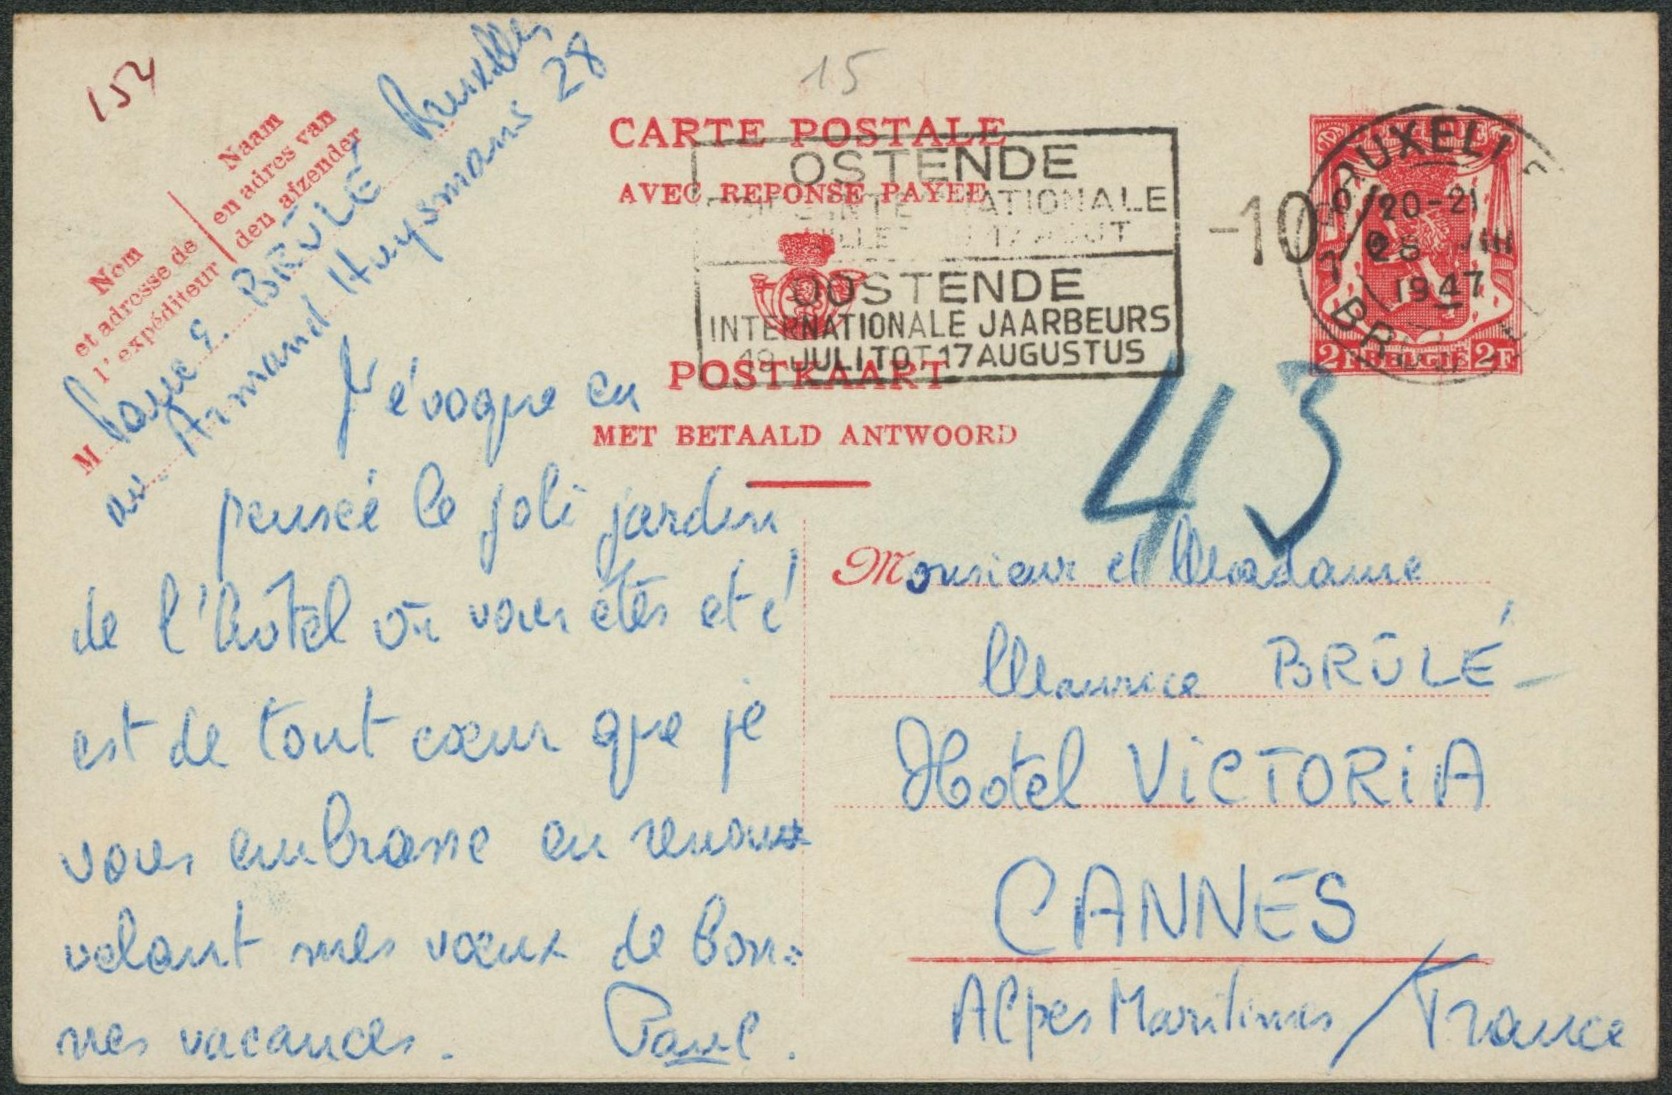 154
15
Naam
en adres van
den afzender
Nom
et adresse de
l'expéditeur
M
BRÛLÉ Bruxelles
av. Armand Huysmans 28
CARTE POSTALE
AVEC REPONSE PAYEE
POSTKAART
MET BETAALD ANTWOORD
OSTENDE
OOSTENDE
INTERNATIONALE JAARBEURS
19 JULI TOT 17 AUGUSTUS
-10
20-21
1947
2F BELGIE 2F
43
J'évoque en
pensée le joli jardin
de l'hôtel où vous êtes et c'
est de tout cœur que je
vous embrasse en renou
velant mes vœux de bon-
nes vacances.
Paul.
Monsieur et Madame
Maurice BRÛLÉ
Hotel VICTORIA
CANNES
Alpes Maritimes / France